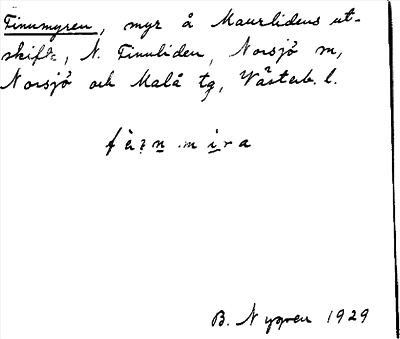 Finnmyren, myr å Maurlidens ut-
skift:, N. Finnliden, Norsjö sn,
Norsjö och Malå tg, Västerb. l.
B. Nygren 1929